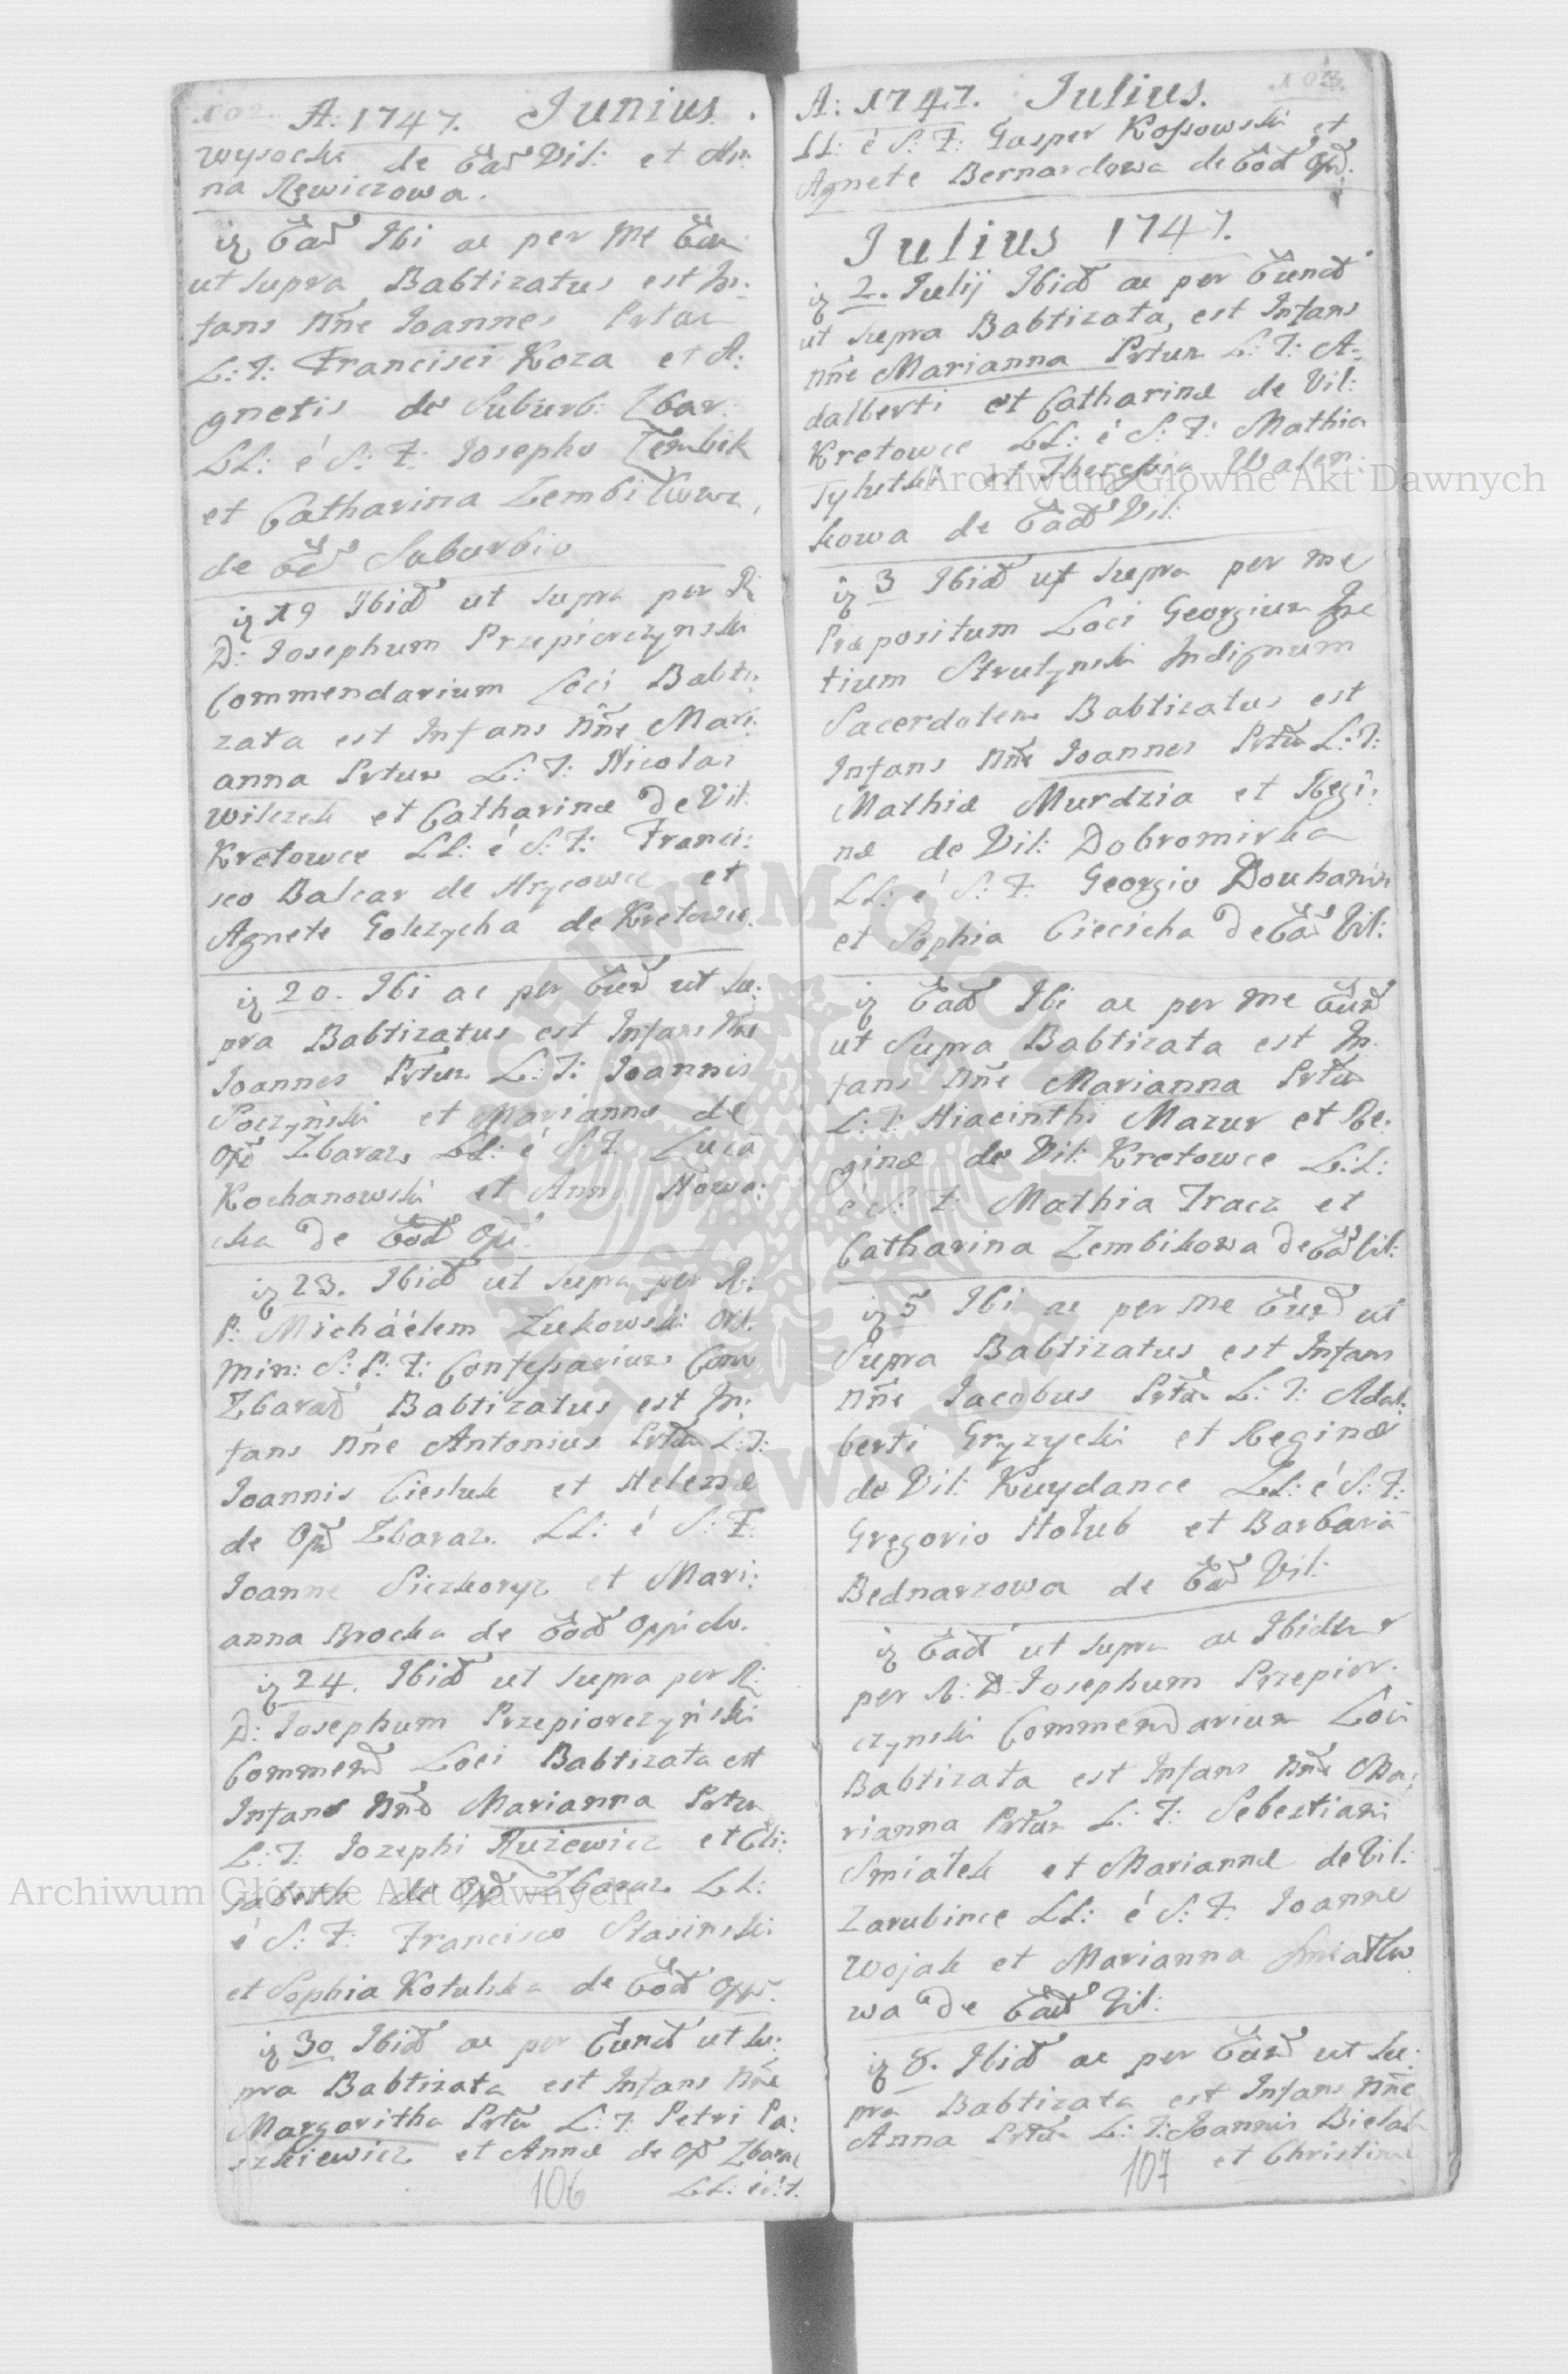 A: 1747. Junius.
wysocki de Ead Vil: et An:
na Rewiczowa.
ig Ead Ibi ac per me Eun
ut supra Babtizatus est In:
fans Nne Joannes Prtur
L: T: Francisci Koza et A:
gnetis de Suburb: Zbar:
LL: é S: F: Josepho Zembik
et Catharina Zembikowa,
de Eod Suburbio
ig 19 Ibid ut supra per R:
D: Josephum Przepiorczynski
Commendarium Loci Babti:
zata est Infans Nne Mari:
anna Prtur L: T: Nicolai
Wilczek et Catharinæ de Vil:
Kretowce LL: é S: F: Franci:
sco Balcar de Hrycowce et
Agnete Golczycha de Kretowce
ig 20. Ibi ac per Eund ut su:
pra Babtizatus est Infans Nne
Joannes Prtur L: T: Joannis
et Mariannæ de
Opd Zbaraz LL: é S: F: Luca
Kochanowski et Anna Nowa:
cka de Eod Opd.
ig 23. Ibid ut supra per R:
P: Michaélem Zukowski Ord:
Min: S: P: F: Confessarium Conv
Zbarad Babtizatus est In:
fans Nne Antonius Prtur L: T:
Joannis Ciesluk et Helenæ
de Opd Zbaraz. LL: é S: F:
Joanne et Mari:
anna Brocka de Eod Oppido.
ig 24. Ibid ut supra per R:
D: Josephum Przepiorczyński
Commend Loci Babtizata est
Infans Nne Marianna Prtur
L: T: Jozephi Ruzewicz et Eli:
sabeth de Opd Zbaraz LL:
é S: F: Francisco Stasinski
et Sophia Kotulska de Eod Opp.
ig 30 Ibid ac per Eund ut su:
pra Babtizata est Infans Nne
Margaritha Prtur L: T: Petri Pa:
szkiewicz et Annæ de Opd Zbaraz
LL: é S: F:
106
103.
A: 1747. Julius.
LL: é S: F: Gasper Kossowski et
Agnete Bernardowa de Eod Opd.
Julius 1747.
ig 2. Julij Ibid ac per Eund
ut supra Babtizata, est Infans
Nne Marianna Prtur L: T: A-
dalberti et Catharinæ de Vil:
Kretowce LL: é S: F: Mathia
et Theressia Walen:
kowa de Ead Vil:
ig 3 Ibid ut supra per me
Præpositum Loci Georgium Igna
tium Strutynski Indignum
Sacerdotem Babtizatus est
Infans Nne Joannes Prtur L: T:
Mathiæ Murdzia et Regi:
næ de Vil: Dobromirka
LL: é S: F: Georgio Douhanin
et Sophia Ciecicha de Ead Vil:
ig Ead Ibi ac per me Eund
ut Supra Babtizata est In:
fans Nne Marianna Prtur
L: T: Hiacinthi Mazur et Re:
ginæ de Vil: Kretowce L:L:
é S: F: Mathia Tracz et
Catharina Zembikowa de Ead Vil:
ig 5 Ibi ac per me Eund ut
Supra Babtizatus est Infans
Nne Jacobus Prtur L: T: Adal:
berti Gryzycki et Reginæ
de Vil: Kuydance LL: é S: F:
Gregorio Hołub et Barbara
Bednarzowa de Ead Vil:
ig Ead ut supra ac Ibidem
per R: D: Josephum Przepior:
czynski Commendarium Loci
Babtizata est Infans Nne Ma:
rianna Prtur L: T: Sebestiani
Smiałek et Mariannæ de Vil:
Zarubince LL: é S: F: Joanne
Wojak et Marianna Smiałko
wa de Ead Vil:
ig 8. Ibid ac per Eund ut su:
pra Babtizata est Infans Nne
Anna Prtur L: T: Joannis Bielak
et Christinæ
107
Archiwum Główne Akt Dawnych
Archiwum Główne Akt Dawnych
ARCHIWUM GŁÓWNE AKT DAWNYCH